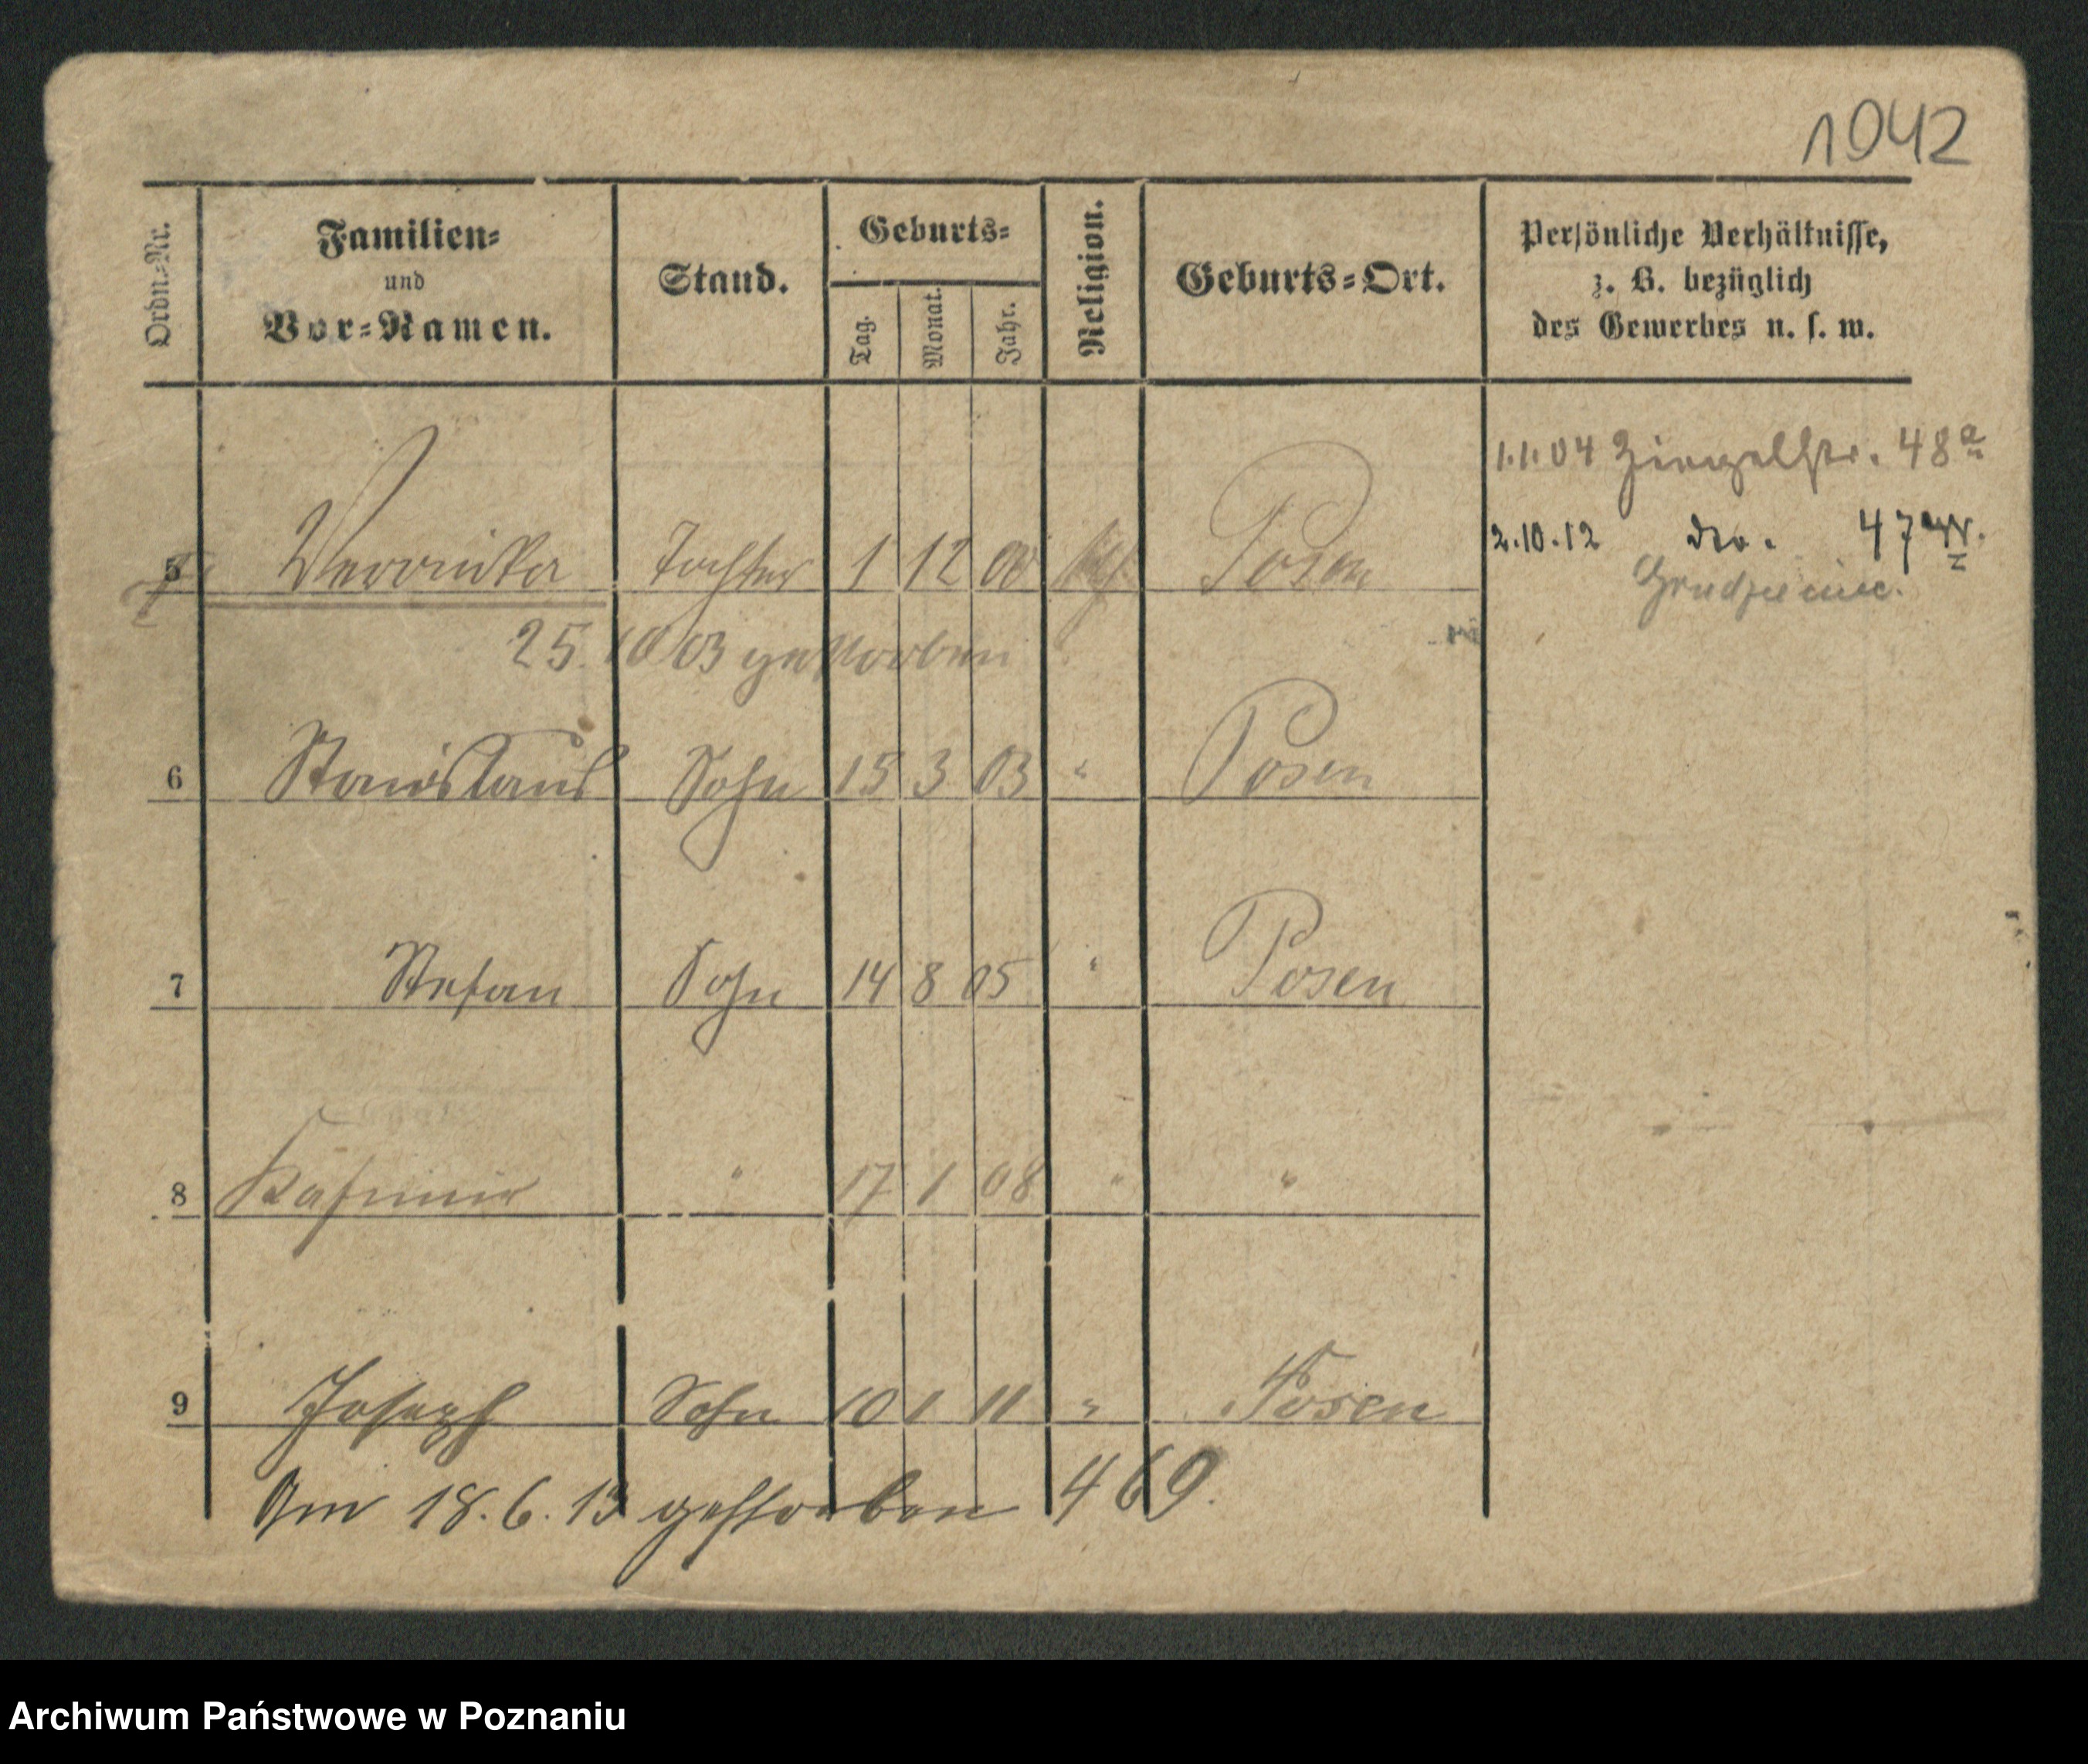 1042
Ordn.-Nr.
Familien-
und
Vor-Namen.
Stand.
Geburts-
Tag.
Monat.
Jahr.
Religion.
Geburts-Ort.
Persönliche Verhältnisse,
z. B. bezüglich
des Gewerbes u. s. w.
1.1.04 Ziegelstr. 48a
2.10.12 do. 47
5 Veronika Tochter 1 12 00 kth Posen
25. 10 03 gestorben
6 Stanislaus Sohn 15 3 03 " Posen
7 Stefan Sohn 14 8 05 " Posen
8 Kasimir " 17 1 08 " "
9 Joseph Sohn 10 1 11 " Posen
Am 18.6.13 gestorben 469.
Archiwum Państwowe w Poznaniu